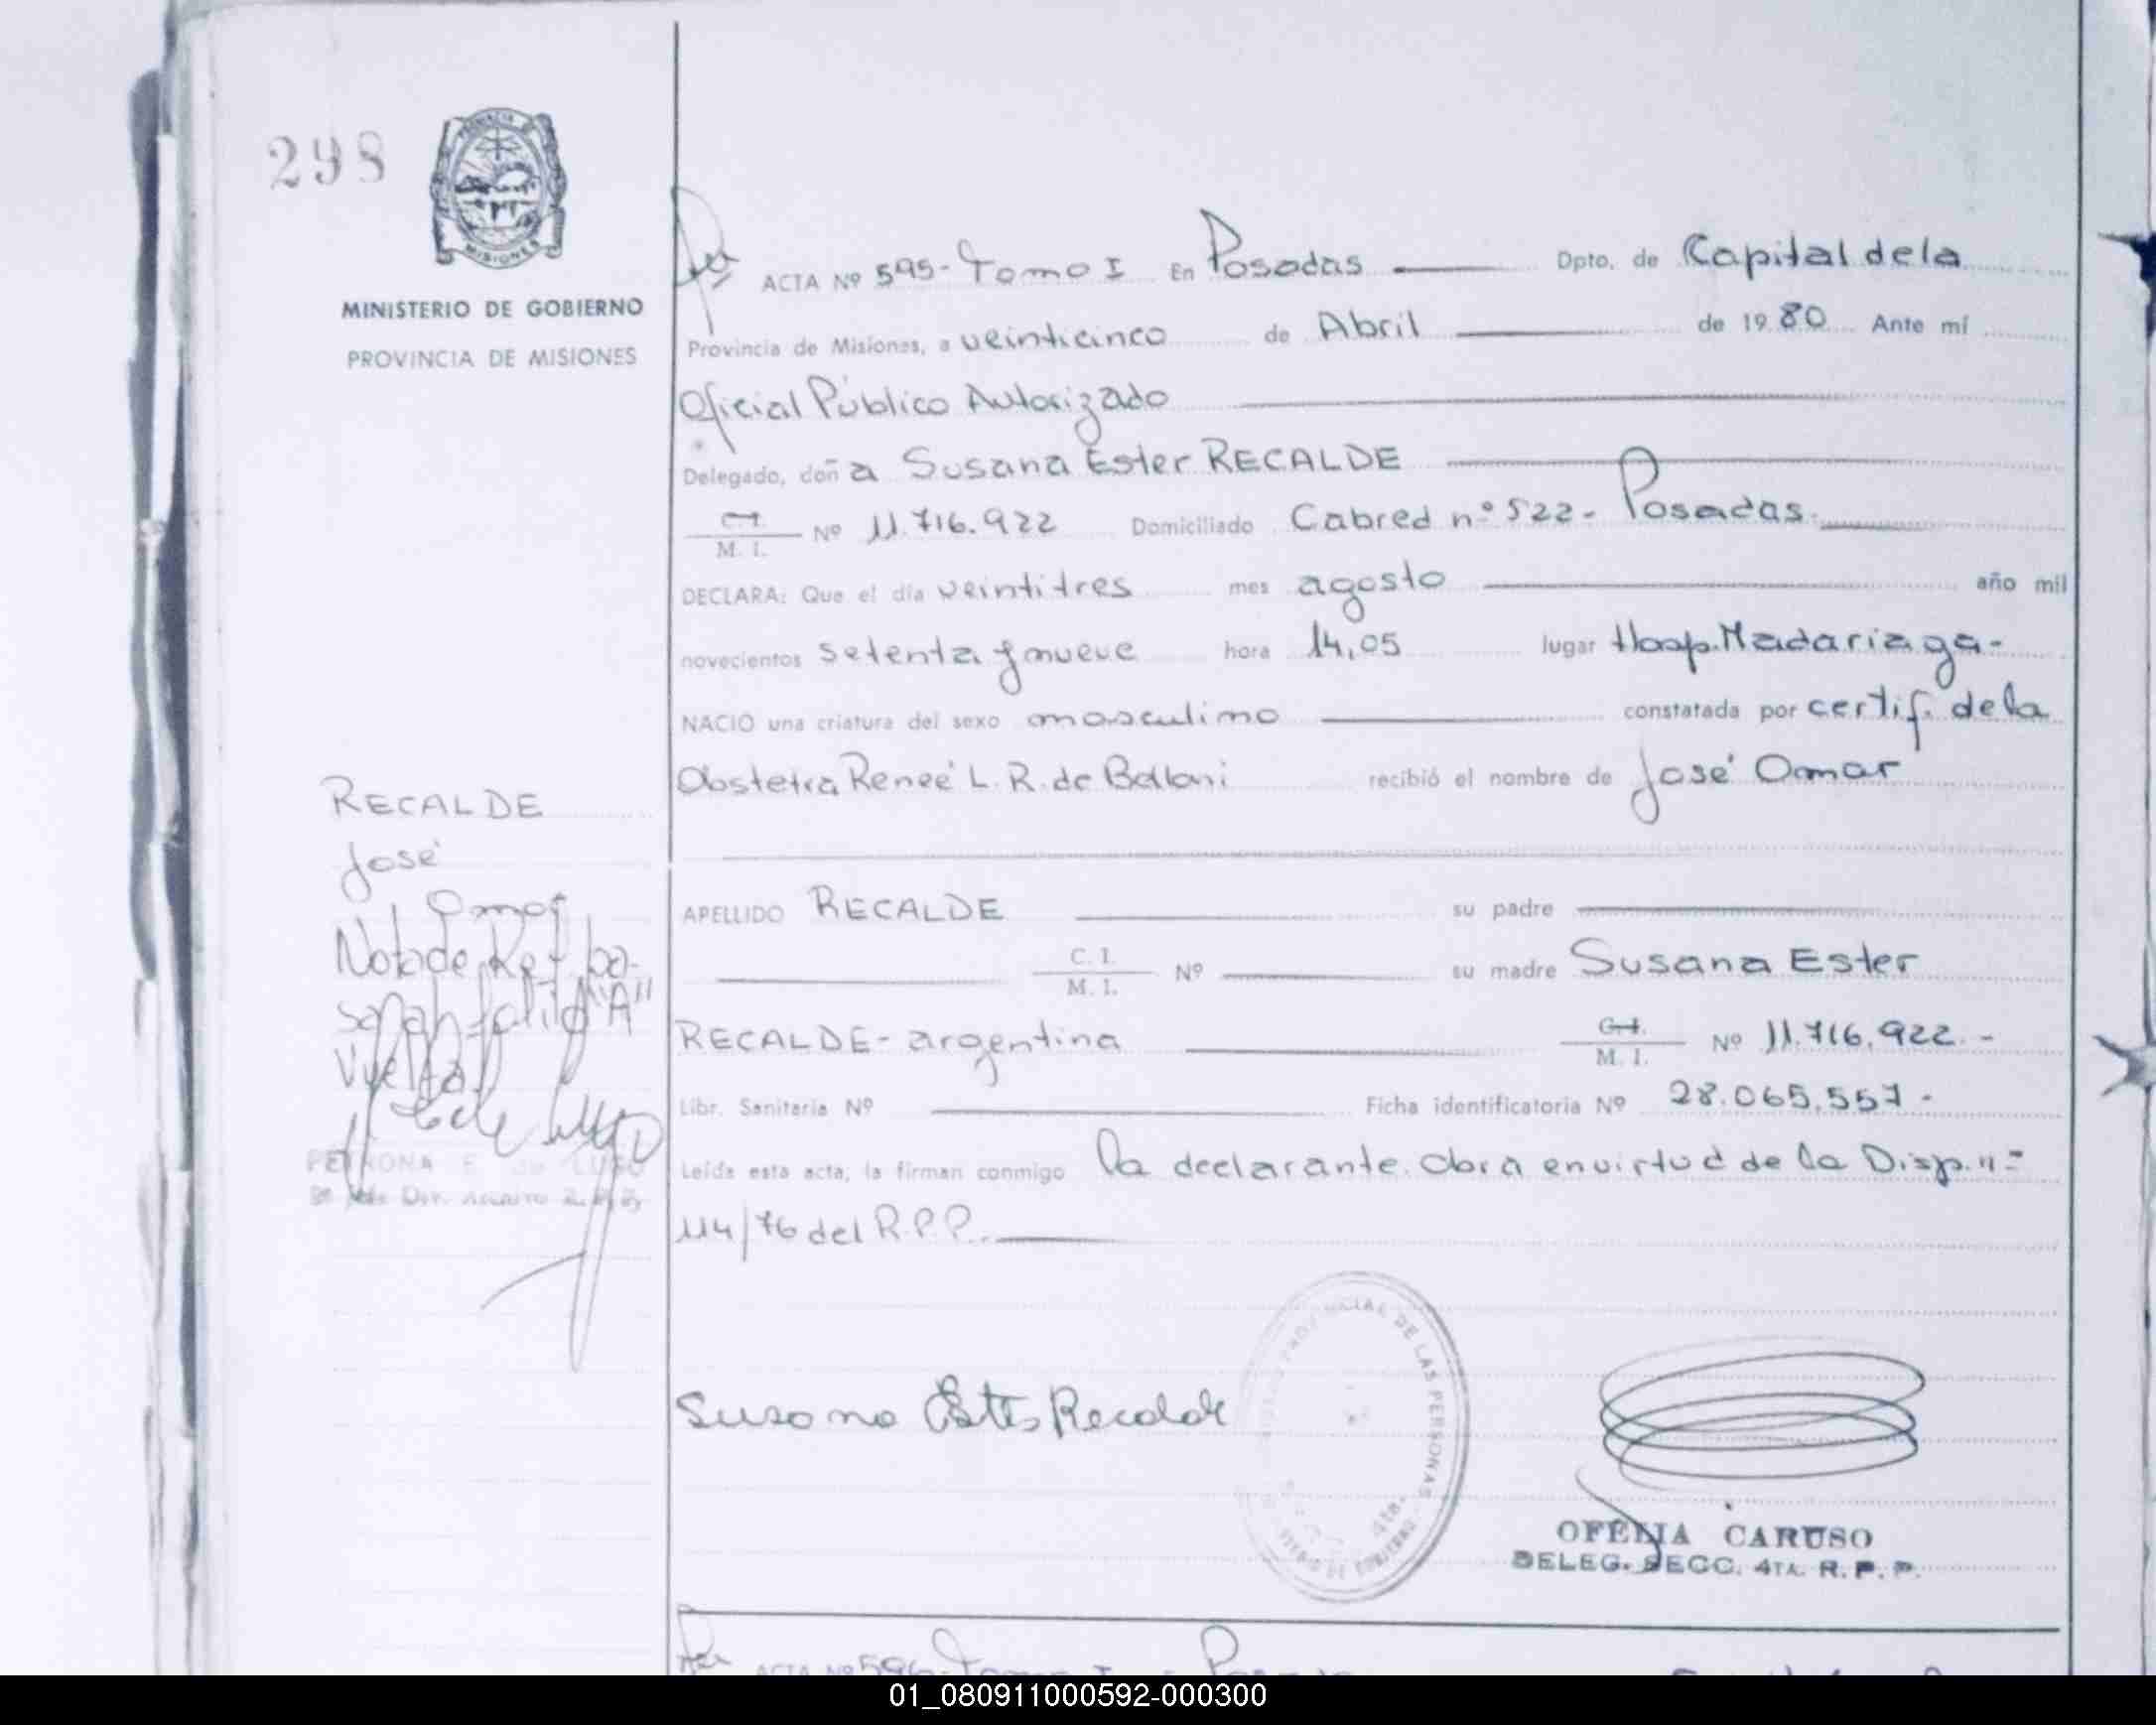 298
PROVINCIA D
MISIONES
MINISTERIO DE GOBIERNO
PROVINCIA DE MISIONES
ACTA Nº 595- Tomo I En Posadas Dpto. de Capital de la
Provincia de Misiones, a veinticinco de Abril de 1980 Ante mí
Oficial Público Autorizado
Delegado, doña Susana Ester RECALDE
C.I.
M. I. Nº 11.716.922 Domiciliado Cabred nº 522- Posadas.
DECLARA: Que el día veintitres mes agosto año mil
novecientos setenta y nueve hora 14,05 lugar Hosp. Madariaga-
NACIO una criatura del sexo masculino constatada por certif. de la
Obstetra Reneé L. R. de Bellani recibió el nombre de José Omar
APELLIDO RECALDE su padre
C. I.
M. I. Nº su madre Susana Ester
RECALDE- argentina C.I.
M. I. Nº 11.716.922.-
Libr. Sanitaria Nº Ficha identificatoria Nº 28.065.557-
Leída esta acta, la firman conmigo la declarante. Obra en virtud de la Disp. nº
114/76 del R.P.P.
RECALDE
José
Omar
Nota de Ref. pa-
sa "A"
Vuelta
PETRONA E. de LUGO
Susana Ester Recalde
PROVINCIAL DE LAS PERSONAS
4ta.
OFELIA CARUSO
DELEG. SECC. 4TA. R. P. P.
ACTA Nº 596- Tomo I
01_080911000592-000300